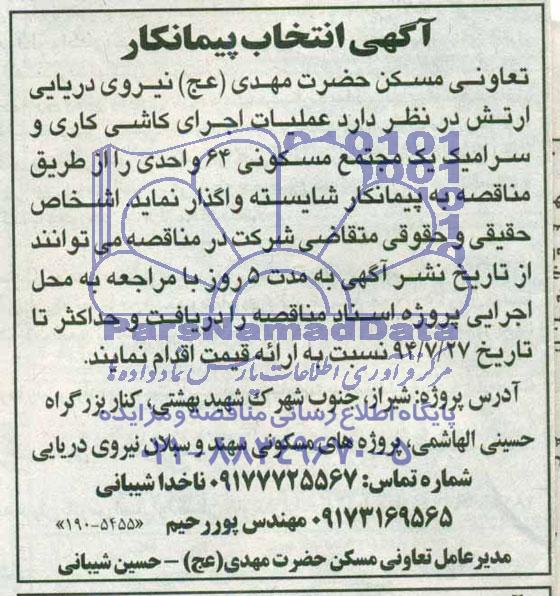 آگهی انتخاب پیمانکار
تعاونی مسکن حضرت مهدی (عج) نیروی دریایی
ارتش در نظر دارد عملیات اجرای کاشی کاری و
سرامیک یک مجتمع مسکونی ۶۴ واحدی را از طریق
مناقصه به پیمانکار شایسته واگذار نماید. اشخاص
حقیقی و حقوقی متقاضی شرکت در مناقصه می توانند
از تاریخ نشر آگهی به مدت ۵ روز با مراجعه به محل
اجرایی پروژه اسناد مناقصه را دریافت و حداکثر تا
ParsNamadData
تاریخ ۹۴/۷/۲۷ نسبت به ارائه قیمت اقدام نمایند.
مرکز فرآوری اطلاعات پارس نماد داده ها
آدرس پروژه: شیراز، جنوب شهرک شهید بهشتی، کنار بزرگراه
پایگاه اطلاع رسانی مناقصه و مزایده
حسینی الهاشمی، پروژه های مسکونی سهند و سبلان نیروی دریایی
۰۲۱-۸۸۳۴۹۶۷۰-۵
شماره تماس: ۰۹۱۷۷۷۲۵۵۶۷ ناخدا شیبانی
۰۹۱۷۳۱۶۹۵۶۵ مهندس پوررحیم «۱۹۰-۵۴۵۵»
مدیرعامل تعاونی مسکن حضرت مهدی(عج) – حسین شیبانی